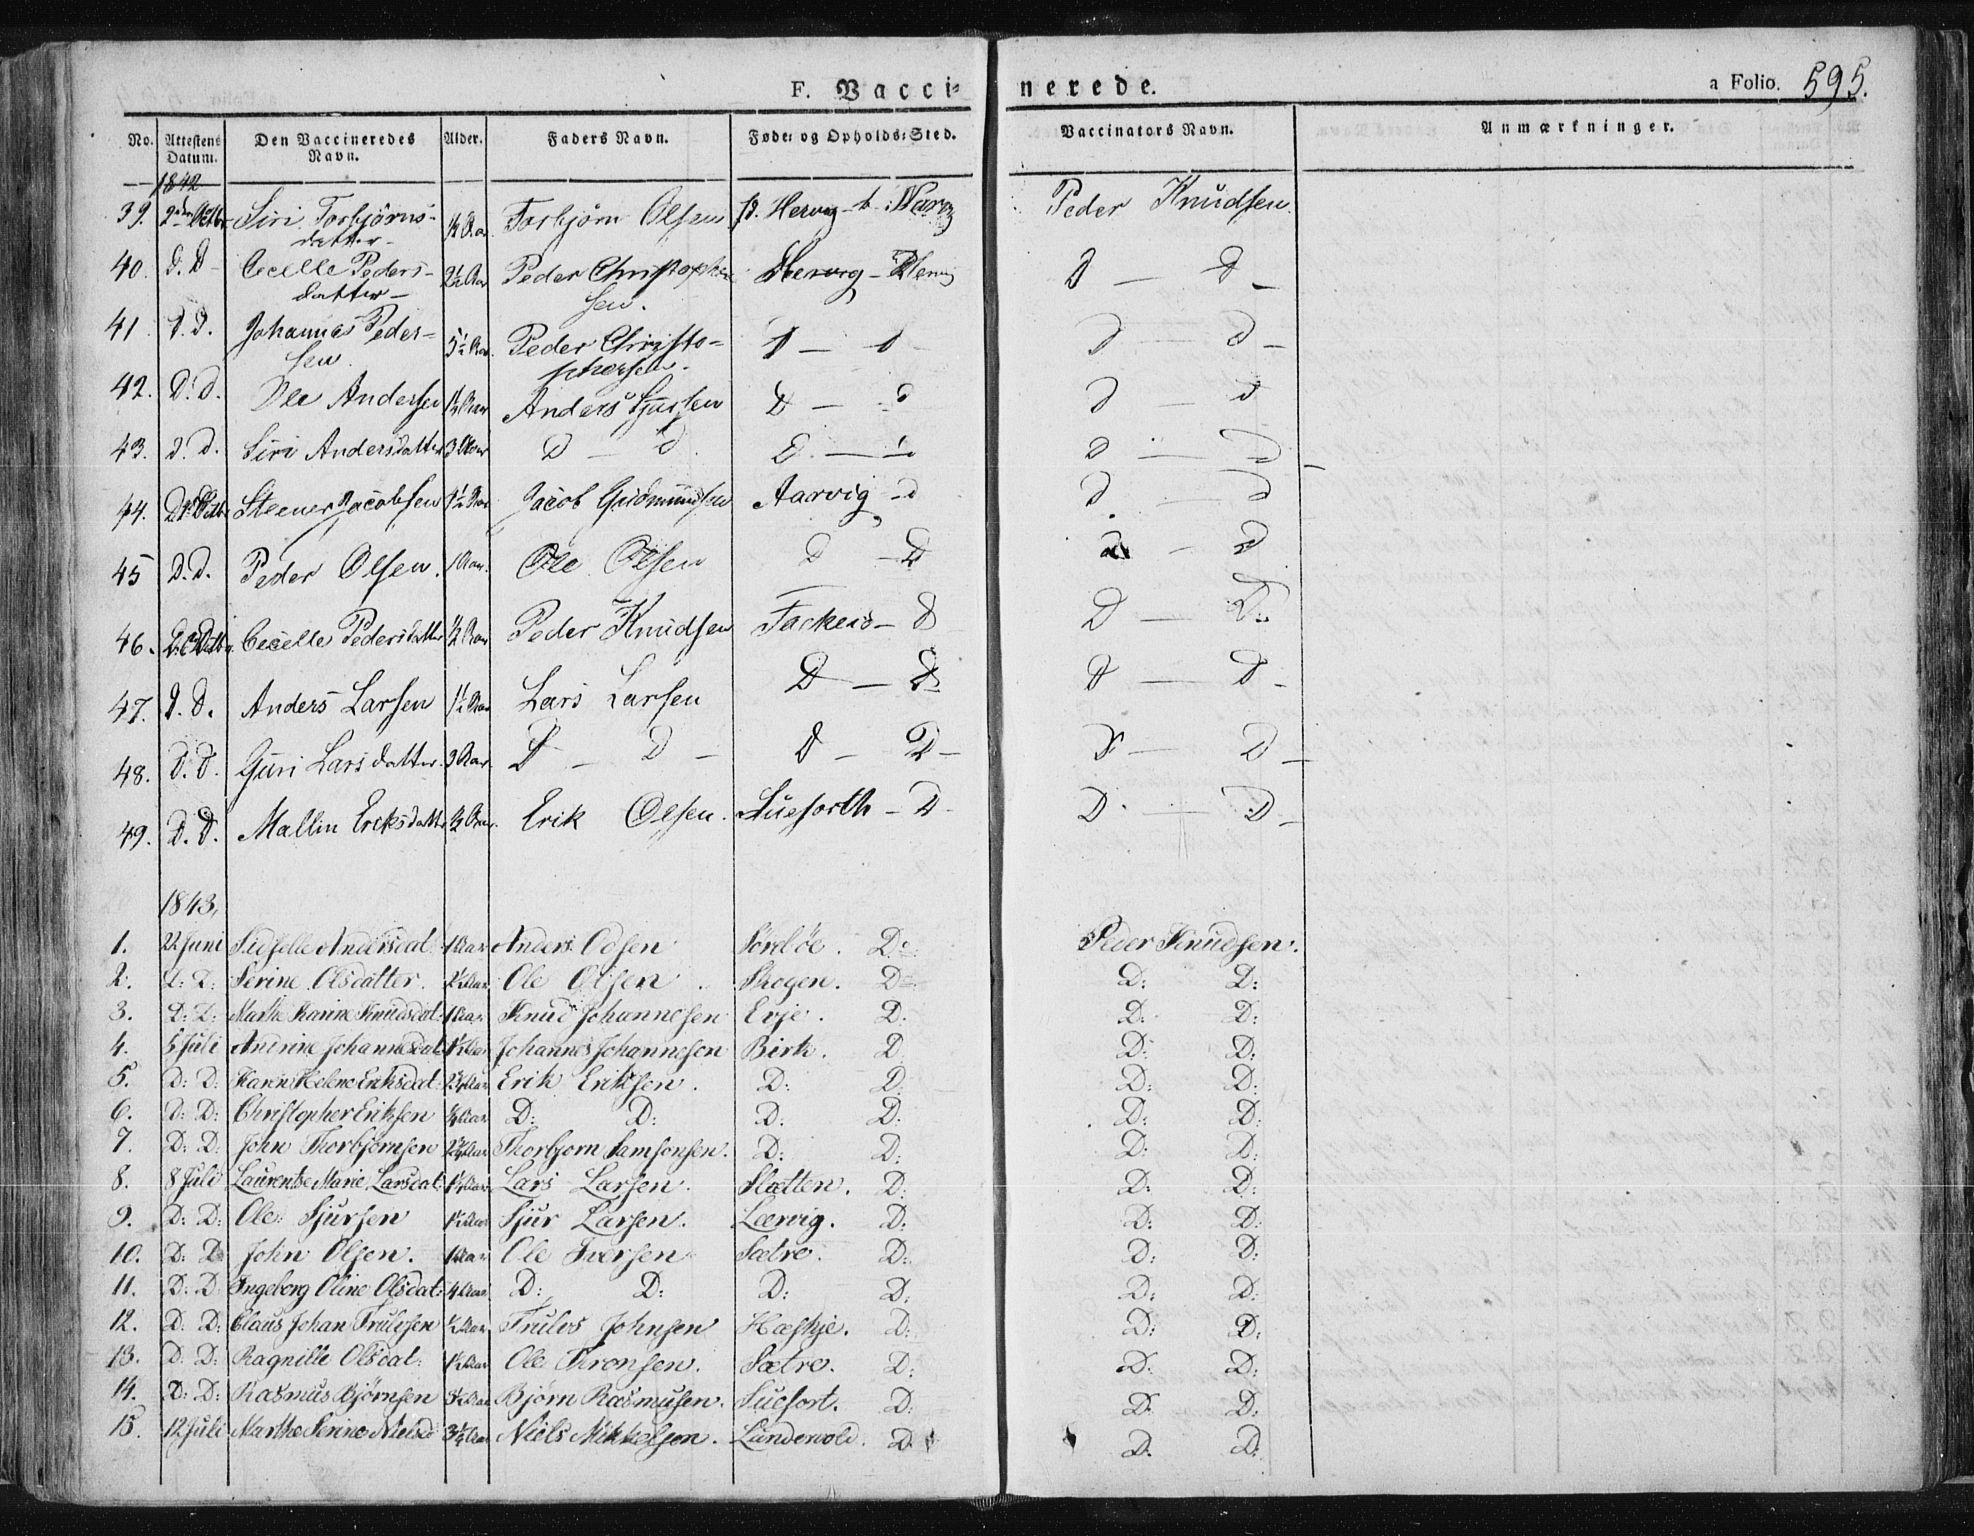 F. Vacci- nerede. a Folio. 595.
No. Attestens Datum. Den Vaccineredes Navn. Alder. Faders Navn. Føde- og Opholds-Sted. Vaccinators Navn. Anmærkninger.
1842
39. Octbr Siri Torbjörns- ½ Aar Torbjörn Olsen Hervig Peder Knudsen
datter
40. D. D Cecelle Peders- 2½ Aar Peder Christopher Hervig - D - D -
datter - sen.
41. D. D. Johannes Peder- 5½ Aar Peder Christo- D - D D - D -
sen phersen.
42. D. D. Ole Andersen 1½ Aar Anders D - D D - D
43. D. D. Siri Andersdatter 3 Aar D - D D. - D D - D -
44. Steener Jacobsen 1½ Aar Jacob Gudmundsen Aarvig - D D - D
45 D. D. Peder Olsen. 1 Aar. Ole Olsen D - D D - D
46. Cecelle Pedersdatter ½ Aar Peder Knudsen D D - D.
47. D. D. Anders Larsen 1½ Aar Lars Larsen D - D D - D -
48. D. D. Guri Larsdatter 3 Aar D - D - D - D - D - D -
49. D. D. Mallin Ericksdatter ½ Aar. Erik Olsen. Lüeforth - D - D - D -
1843,
1. 22 Juni Sidselle Andersdat. 1 Aar Anders Odsen Sørbøe. D: Peder Knudsen.
2. D: D: Serine Olsdatter. Aar Ole Olsen Skogen. D D: D:
3. D: D: Marthe Karine Knudsdat: 1 Aar Knud Johannesen Evje. D. D: D:
4. 5 Juli Johannesdat Aar Johannes Johannesen Birk. D D: D:
5. D: D: Karen Helene Eriksdat. Aar Erik Eriksen. D: D: D: D:
6. D: D: Christopher Eriksen Aar D: D: D: D: D: D:
7. D: D: John Thorbjørnsen Aar Thorbjorn Samsonsen. D: D: D: D:
8. 8 Juli Laurentse Marie Larsdat: Aar Lars Larsen. Slætten. D: D: D:
9. D: D: Ole Sjursen Aar Sjur Larsen. Lærvig. D: D: D:
10. D: D John Olsen. 1 Aar Ole Iversen Sætre. D: D: D:
11. D: D Ingeborg Oline Olsdat: 4 Aar D: D: D: D: D: D:
12. D: D: Claus Johan Trulssen Aar Truls Johnsen D: D: D:
13. D: D: Ragnille Olsdat: Aar Ole Sætre. D: D: D:
14. D: D: Rasmus Bjørnsen Aar Bjørn Rasmusen. Lüefort. D: D: D:
15. 12 Juli Marthe Serine Nielsd 3¼ Aar Niels Mikkelsen. Lundervold. D: D: D: